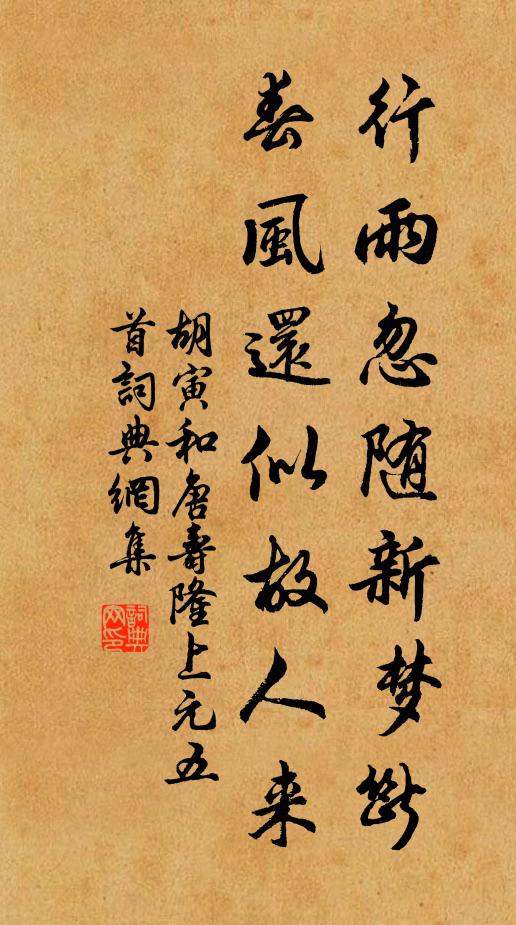 行雨忽随新梦断
春風還似故人来
胡寅和唐壽隆上元五
首詞典網集
詞典
网印